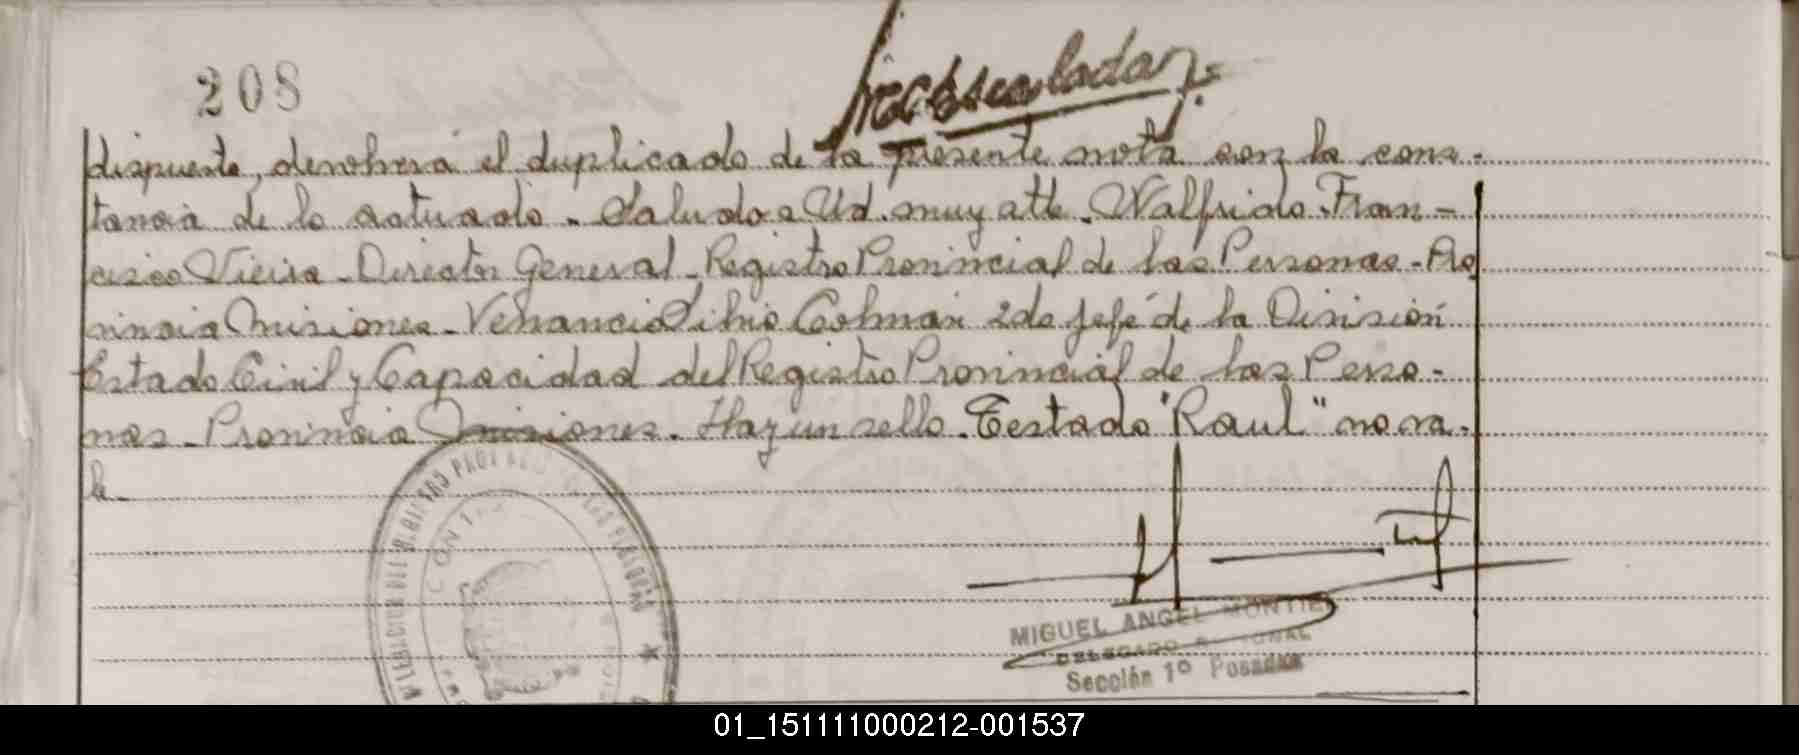 208
dispuesto, devolverá el duplicado de la presente nota con la cons-
tancia de lo actuado. Saluda a Ud. muy atte. Walfrido Fran-
cisco Vieira - Director General - Registro Provincial de las Personas - Pro
vincia Misiones - Venancio Silvio Colman 2do Jefe de la División
Estado Civil y Capacidad del Registro Provincial de las Perso-
nas - Provincia Misiones. Hay un sello. Testado "Raul" no va-
le -
MIGUEL ANGEL MONTIEL
DELEGADO SECCIONAL
Sección 1º Posadas
01_151111000212-001537